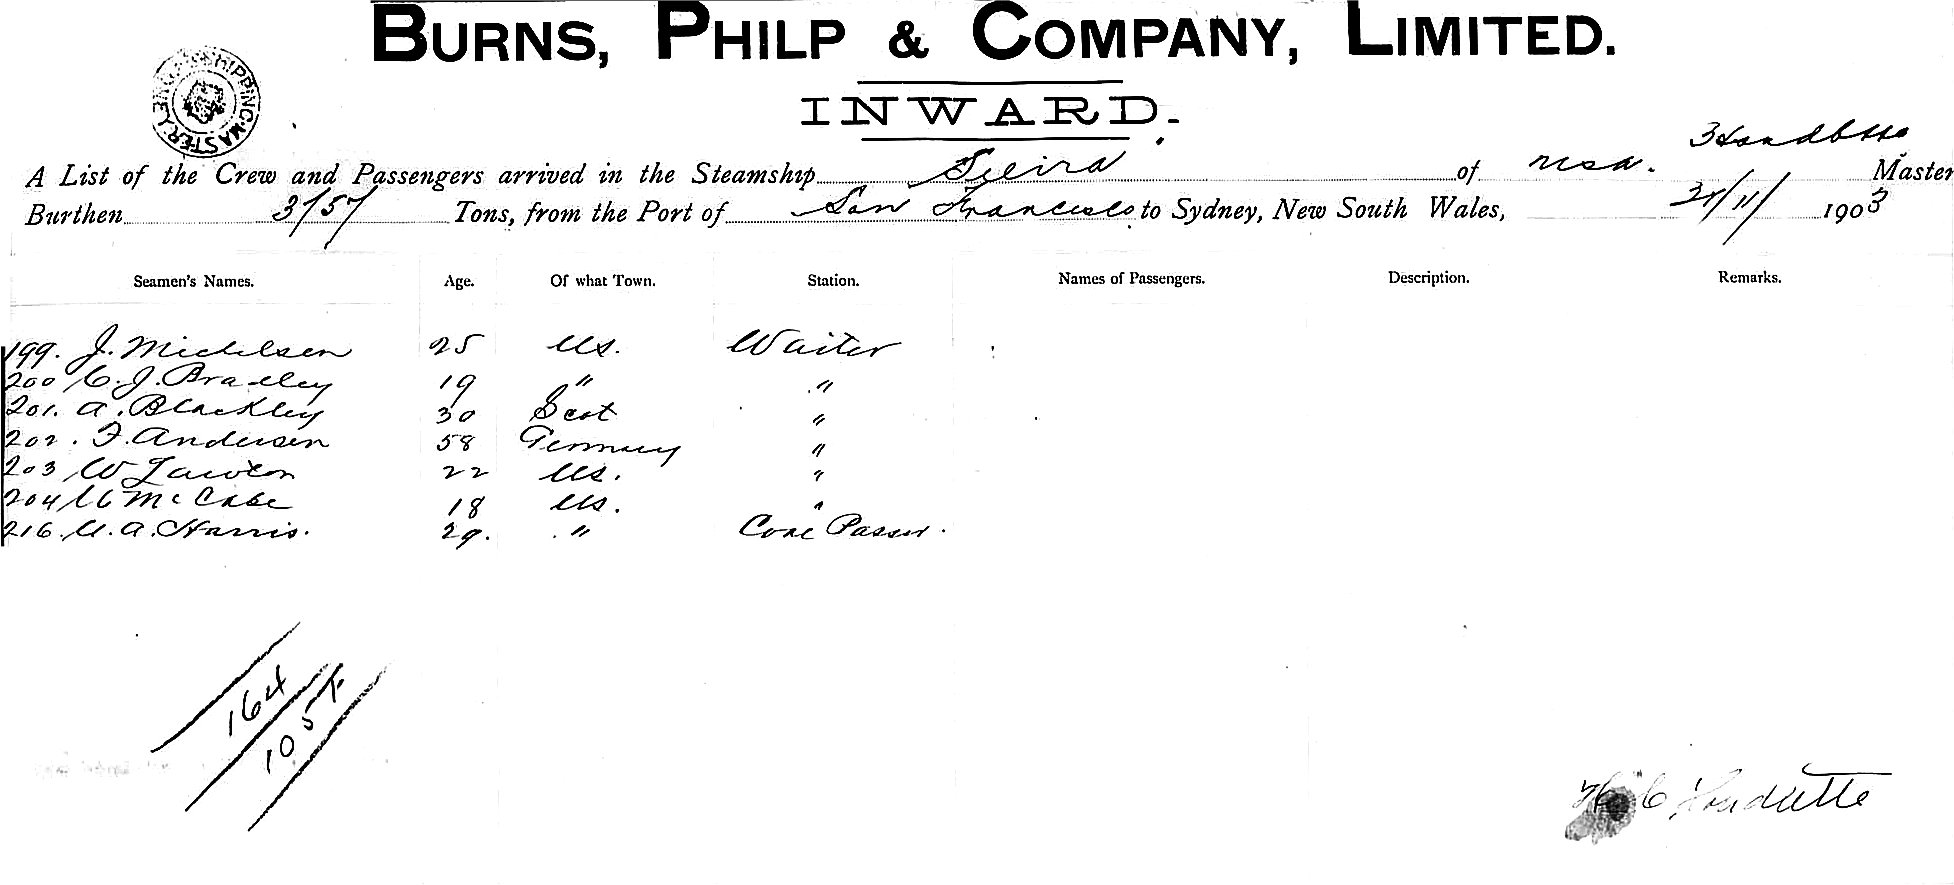 BURNS, PHILP & COMPANY, LIMITED.
SHIPPING MASTER
INWARD.
A List of the Crew and Passengers arrived in the Steamship of USA. Master
Burthen 3157 Tons, from the Port of San Francisco to Sydney, New South Wales, /11/ 1903
Seamen's Names. Age. Of what Town. Station. Names of Passengers. Description. Remarks.
199. J. Michelsen 25 US. Waiter
200 C. J. Bradley 19 " "
201. A. Blackley 30 Scot "
202. F. Andersen 58 Germany "
203 W Lawton 22 US. "
204 McCabe 18 US. "
216. A. Harris. 29. " Coal Passer.
164
105
H C Houdlette